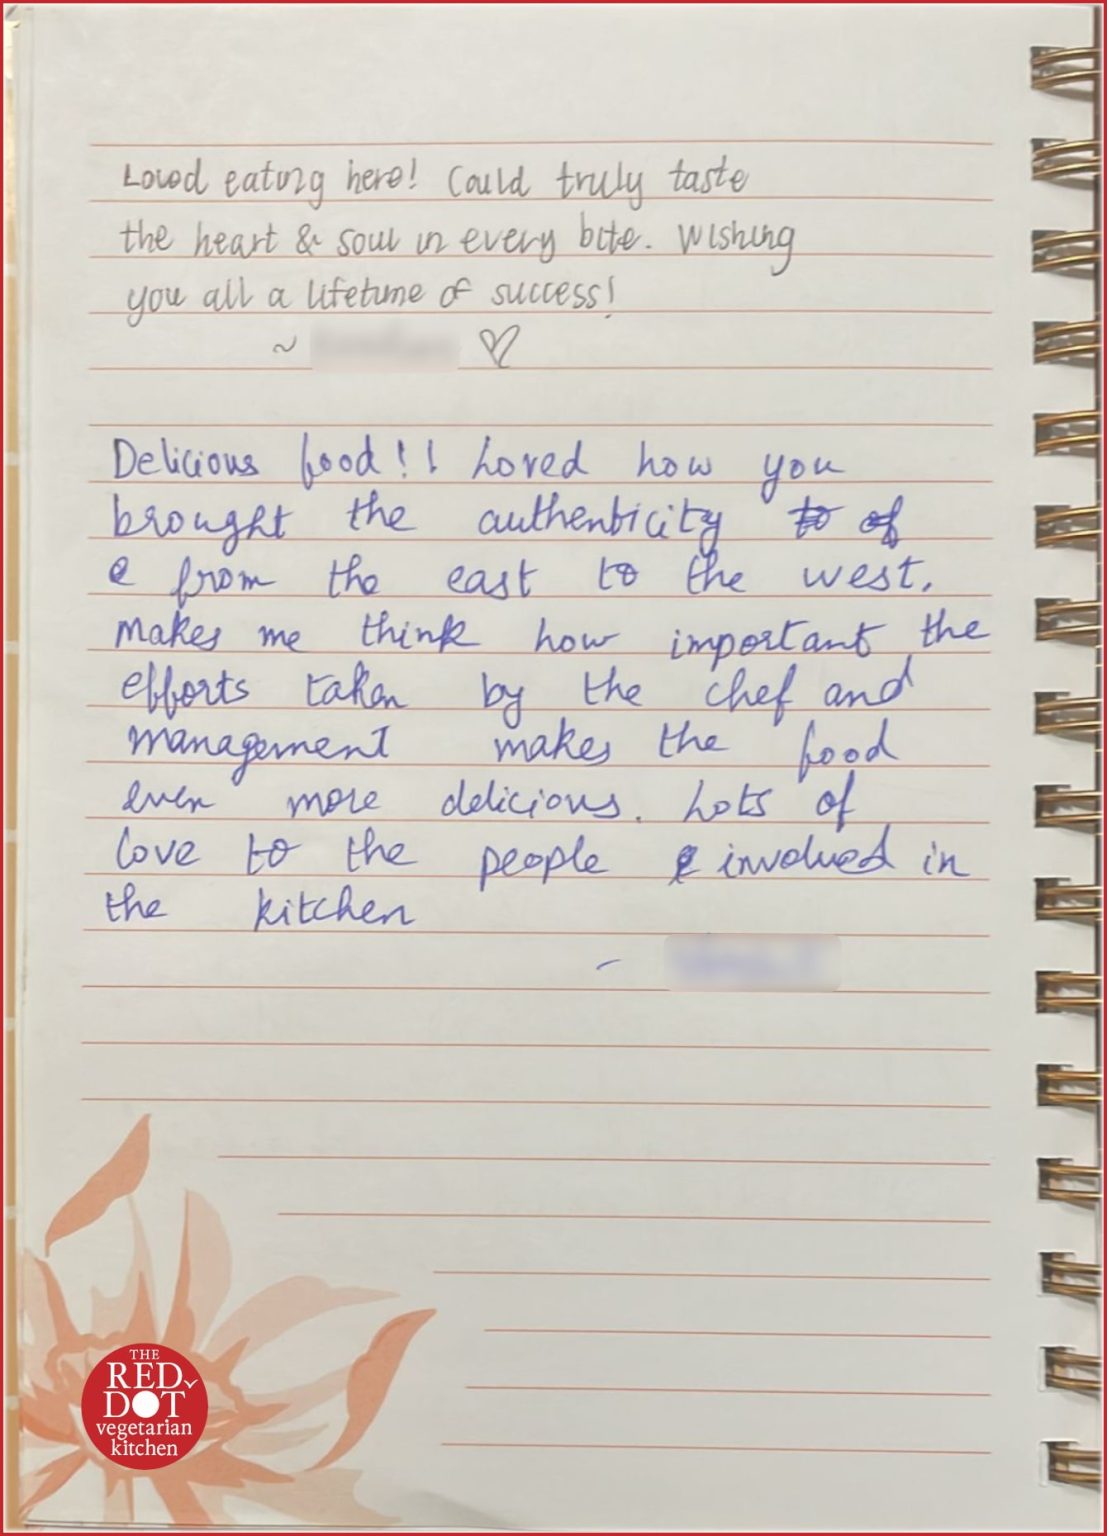 Loved eating here! Could truly taste
the heart & soul in every bite. Wishing
you all a lifetime of success!
~ ♡
Delicious food!! Loved how you
brought the authenticity to of
e from the east to the west.
Makes me think how important the
efforts taken by the chef and
management makes the food
even more delicious. Lots of
love to the people involved in
the kitchen
-
THE
RED
DOT
vegetarian
kitchen